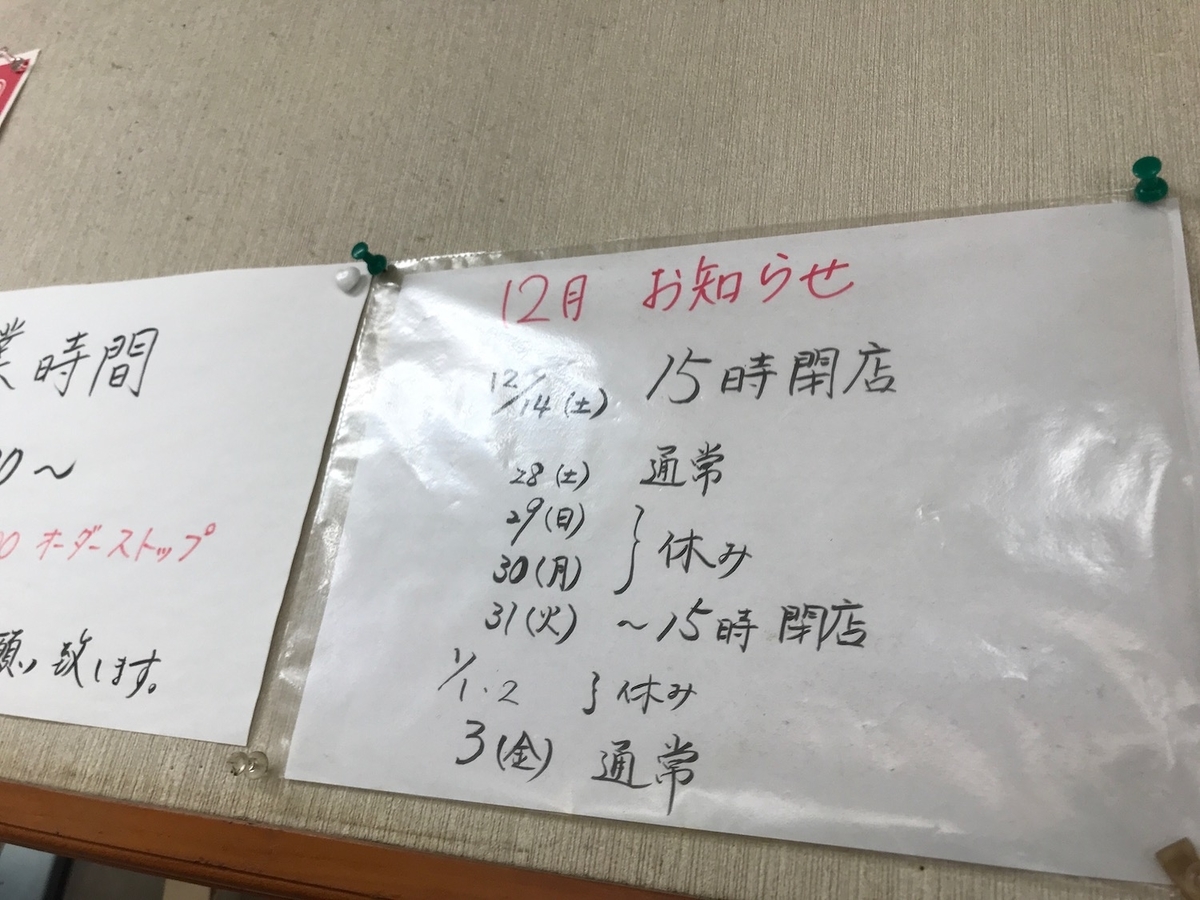 業時間
00～
00 オーダーストップ
願い致します。
12月 お知らせ
12/14(土) 15時閉店
28(土) 通常
29(日)
30(月) } 休み
31(火) ～15時閉店
1/1.2 } 休み
3(金) 通常